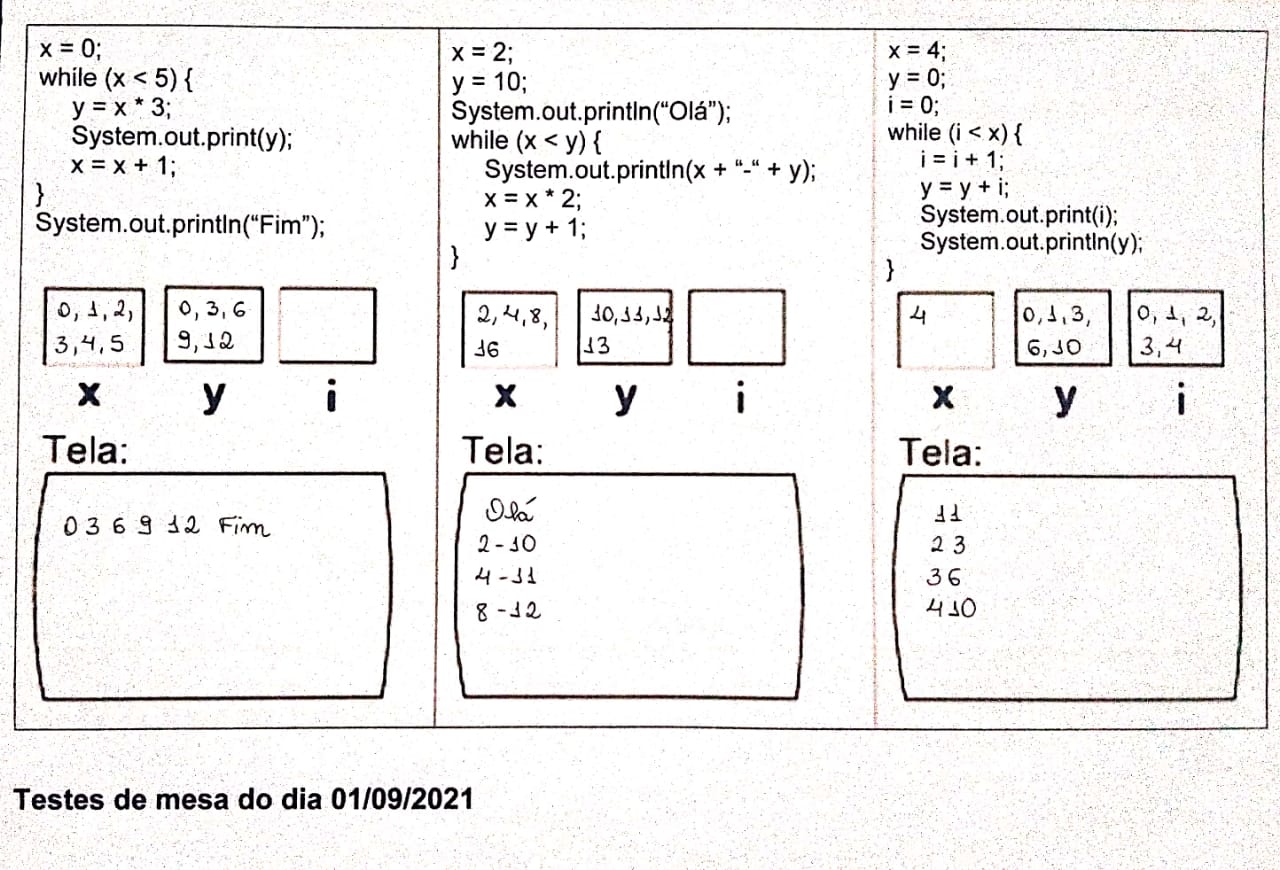 x = 0;
while (x < 5) {
y = x * 3;
System.out.print(y);
x = x + 1;
}
System.out.println(“Fim”);
0, 1, 2,
3, 4, 5
0, 3, 6
9, 12
x y i
Tela:
0 3 6 9 12 Fim
x = 2;
y = 10;
System.out.println(“Olá”);
while (x < y) {
System.out.println(x + “-“ + y);
x = x * 2;
y = y + 1;
}
2, 4, 8,
16
10, 11, 12
13
x y i
Tela:
Olá
2 - 10
4 - 11
8 - 12
x = 4;
y = 0;
i = 0;
while (i < x) {
i = i + 1;
y = y + i;
System.out.print(i);
System.out.println(y);
}
4
0, 1, 3,
6, 10
0, 1, 2,
3, 4
x y i
Tela:
11
2 3
3 6
4 10
Testes de mesa do dia 01/09/2021